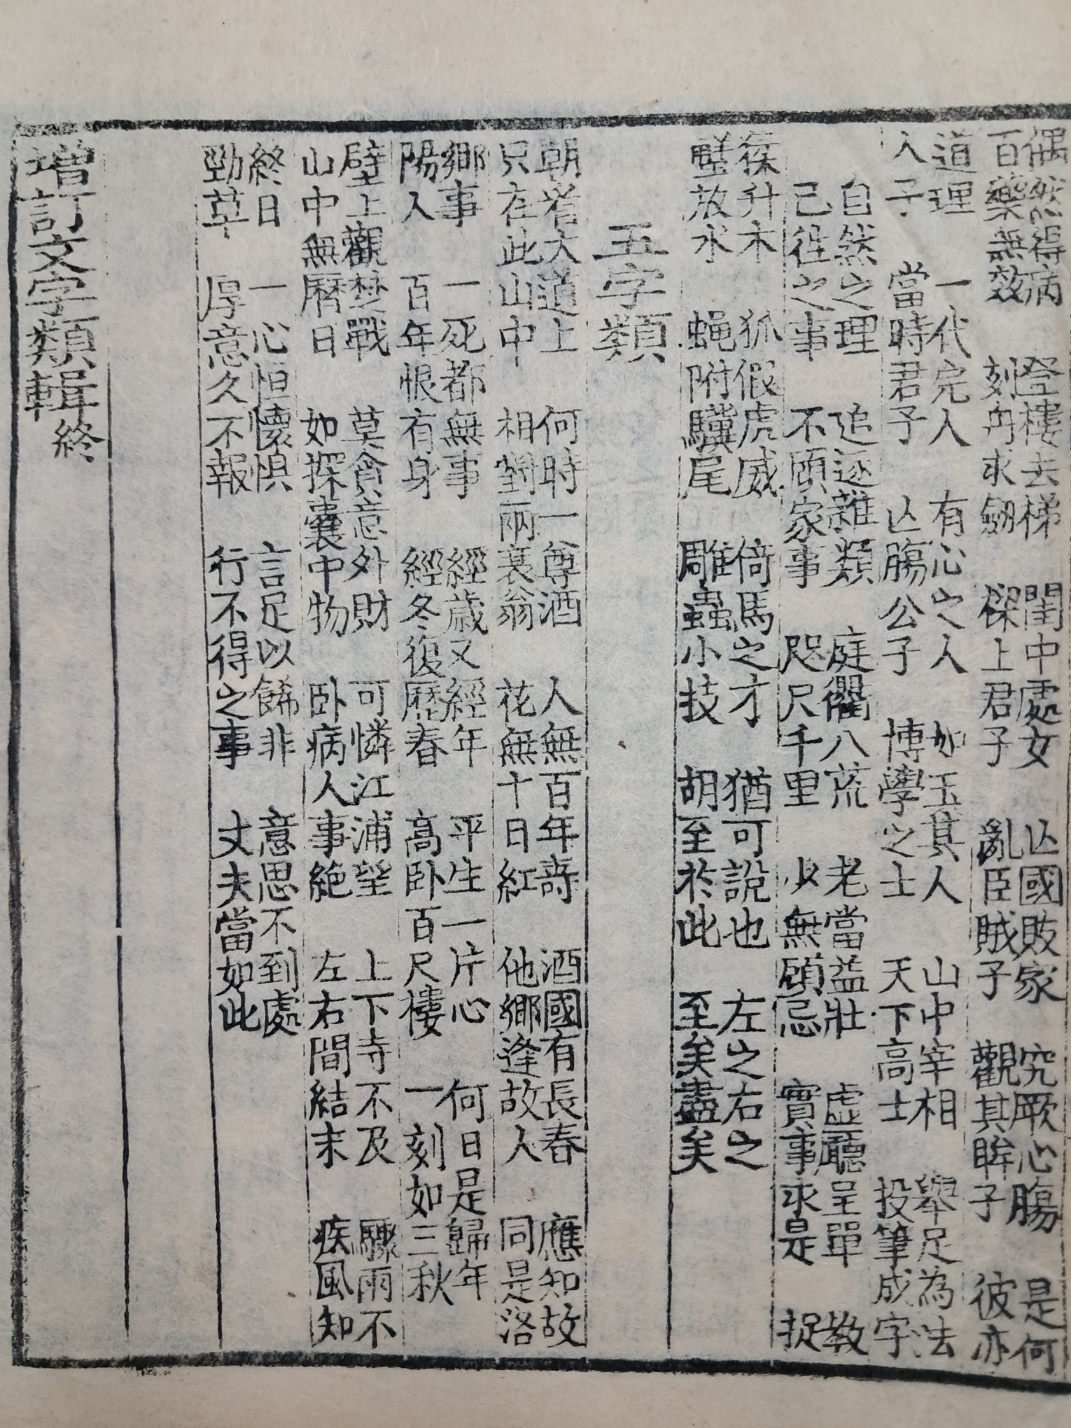 偶然得病　登樓去梯　閨中處女　亾國敗家　究厥心腸　是何
百藥無效　刻舟求劒　樑上君子　亂臣賊子　觀其眸子　彼亦
道理　一代完人　有心之人　如玉其人　山中宰相　舉足為法
人子　當時君子　亾腸公子　博學之士　天下高士　投筆成字
自然之理　追逐雜類　庭衢八荒　老當益壯　虛聽呈單　教
己徃之事　不顧家事　咫尺千里　少無顧忌　實事求是　捉
猱升木　狐假虎威　倚馬之才　猶可說也　左之右之
放水　蝇附驥尾　雕蟲小技　胡至於此　至矣盡矣
五字類
朝着大道上　何時一尊酒　人無百年壽　酒國有長春　應知故
只在此山中　相對兩衰翁　花無十日紅　他鄉逢故人　同是洛
鄉事　一死都無事　經歲又經年　平生一片心　何日是歸年
陽人　百年恨有身　經冬復歷春　高卧百尺樓　一刻如三秋
壁上觀楚戰　莫貪意外財　可憐江浦望　上下寺不及　驟雨不
山中無曆日　如探囊中物　卧病人事絶　左右間結末　疾風知
終日　一心怛懷惧　言足以餙非　意思不到處
勁草　厚意久不報　行不得之事　丈夫當如此
增訂文字類輯終